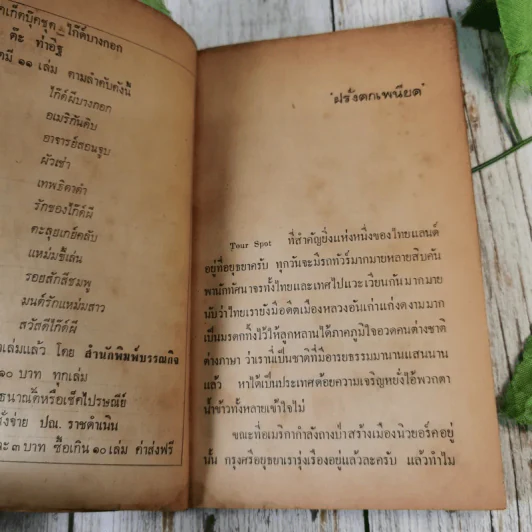 ก็ตบุ๊คชุด ไก๊ด์บางกอก
ต๊ะ ท่าอิฐ
มี ๑๑ เล่ม ตามลำดับดังนี้
ไก๊ด์ผีบางกอก
อเมริกันดิบ
อาจารย์สอนจูบ
ผัวเช่า
เทพธิดาดำ
รักของไก๊ด์ผี
ตะลุยเกย์คลับ
แหม่มขี้เล่น
รอยสักสีชมพู
มนต์รักแหม่มสาว
สวัสดีไก๊ด์ผี
เล่มแล้ว โดย สำนักพิมพ์บรรณกิจ
๑๐ บาท ทุกเล่ม
ธนาณัติหรือเช็คไปรษณีย์
สั่งจ่าย ปณ. ราชดำเนิน
ละ ๓ บาท ซื้อเกิน ๑๐ เล่ม ค่าส่งฟรี
'ฝรั่งตกเพนียด'
Tour Spot ที่สำคัญยิ่งแห่งหนึ่งของไทยแลนด์
อยู่ที่อยุธยาครับ ทุกวันจะมีรถทัวร์มากมายหลายสิบคัน
พานักทัศนาจรทั้งไทยและเทศไปแวะเวียนกันมากมาย
นับว่าไทยเรายังมีอดีตเมืองหลวงอันเก่าแก่งดงามมาก
เป็นมรดกทิ้งไว้ให้ลูกหลานได้ภาคภูมิใจอวดคนต่างชาติ
ต่างภาษา ว่าเรานี่เป็นชาติที่มีอารยธรรมมานานแสนนาน
แล้ว หาได้เป็นประเทศด้อยความเจริญหยั่งไอ้พวกตา
น้ำข้าวทั้งหลายเข้าใจไม่
ขณะที่อเมริกากำลังถางป่าสร้างเมืองนิวยอร์คอยู่
นั้น กรุงศรีอยุธยาเรารุ่งเรืองอยู่แล้วละครับ แล้วทำไม